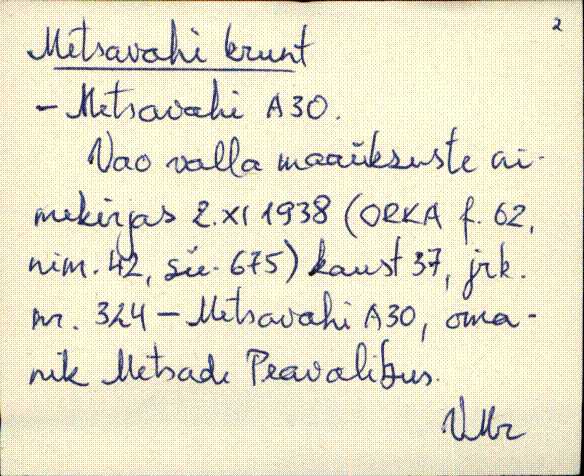 2
Metsavahi krunt
- Metsavahi A30.
Vao valla maaüksuste ni-
mekirjas 2.XI 1938 (ORKA f. 62,
nim. 42, sü. 675) kaust 37, jrk.
nr. 324 - Metsavahi A30, oma-
nik Metsade Peavalitsus.